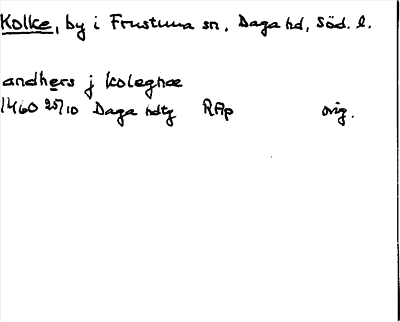 Kolke, by i Frustuna sn, Daga hd, Söd. l.
andhers j koleghæ
1460 25/10 Daga hdtg RAp orig.